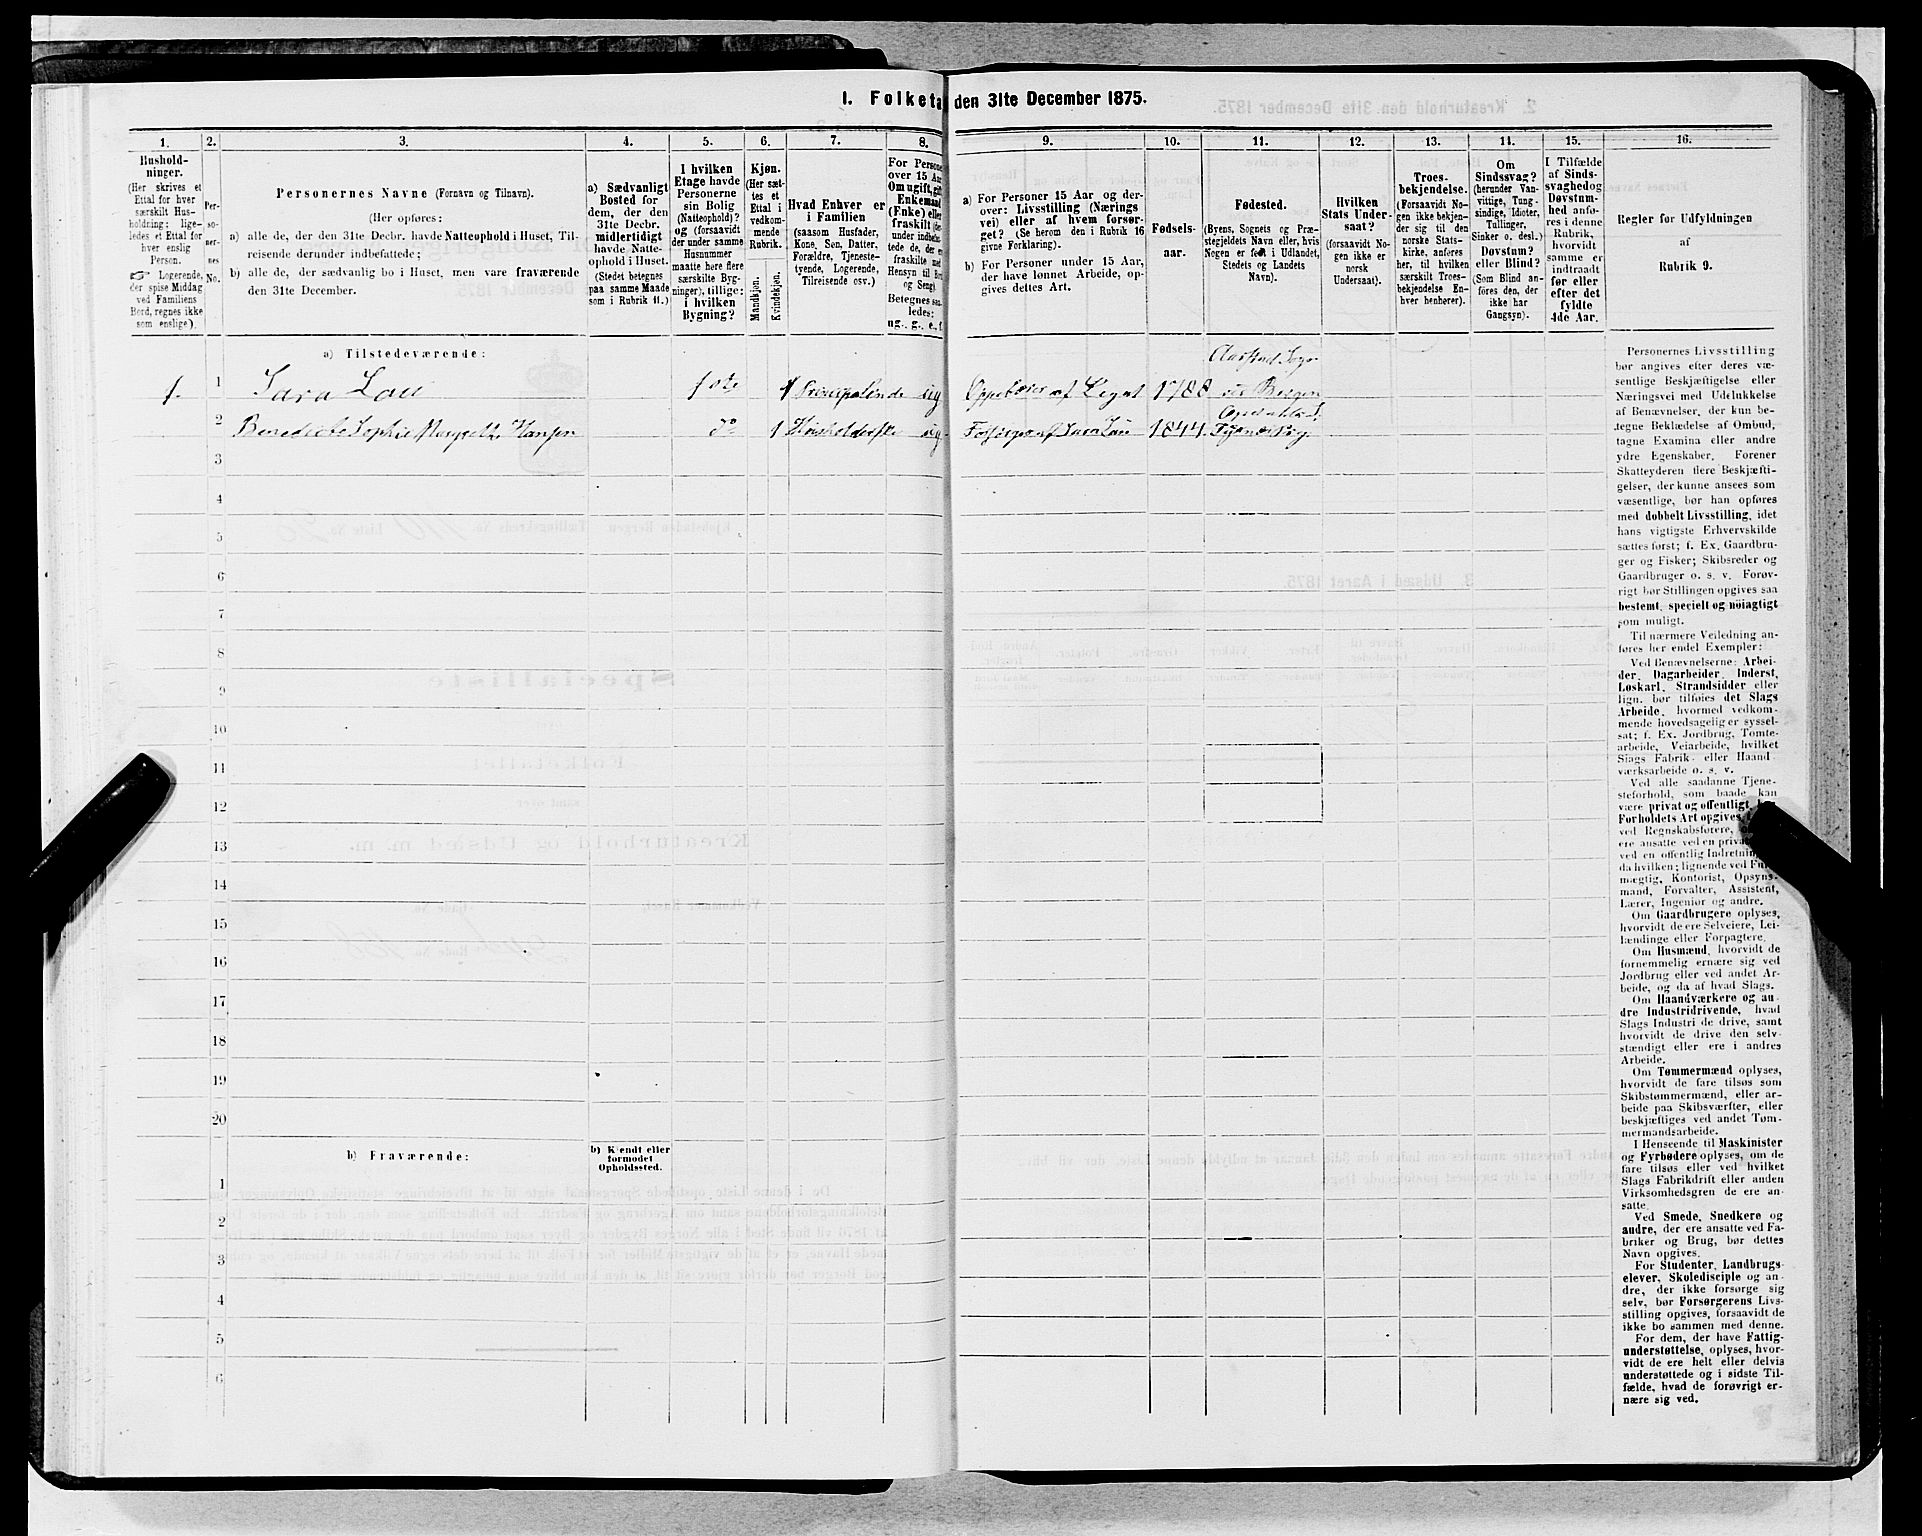 1. Folketa den 31te December 1875.
1. 2. 3. 4. 5. 6. 7. 8. 9. 10. 11. 12. 13. 14. 15. 16.
Hushold-
ninger.
(Her skrives et
Ettal for hver
særskilt Hus-
holdning; lige-
ledes et Ettal for
hver enslig
Person.
☞ Logerende,
der spise Middag
ved Familiens
Bord, regnes ikke
som enslige).
Per-
so-
ner-
nes
No.
Personernes Navne (Fornavn og Tilnavn).
(Her opføres:
a) alle de, der den 31te Decbr. havde Natteophold i Huset, Til-
reisende derunder indbefattede;
b) alle de, der sædvanlig bo i Huset, men vare fraværende
den 31te December.
a) Sædvanligt
Bosted for
dem, der den
31te Decbr.
midlertidigt
havde Natte-
ophold i Huset.
(Stedet betegnes
paa samme Maade
som i Rubrik 11.)
I hvilken
Etage havde
Personerne
sin Bolig
(Natteophold)?
og (forsaavidt
der under samme
Husnummer
maatte høre flere
særskilte Byg-
ninger), tillige:
i hvilken
Bygning?
Kjøn.
(Her sæt-
tes et
Ettal i
vedkom-
mende
Rubrik.
Mandkjøn.
Kvindekjøn.
Hvad Enhver er
i Familien
(saasom Husfader,
Kone, Søn, Datter,
Forældre, Tjeneste-
tyende, Logerende,
Tilreisende osv.)
For Persone
over 15 Aar
Om ugift, gift
Enkemand
(Enke) eller
fraskilt (der-
under indbefat-
tede de, der e
fraskilte med
Hensyn til Bo
og Seng).
Betegnes saa-
ledes:
ug., g., e., f.
a) For Personer 15 Aar og der-
over: Livsstilling (Nærings
vei) eller af hvem forsør-
get? (Se herom den i Rubrik 16
givne Forklaring).
b) For Personer under 15 Aar,
der have lønnet Arbeide, op-
gives dettes Art.
Fødsels-
aar.
Fødested.
(Byens, Sognets og Præ-
stegjeldets Navn eller, hvis
Nogen er født i Udlandet,
Stedets og Landets
Navn).
Hvilken
Stats Under-
saat?
(forsaavidt No-
gen ikke er
norsk
Undersaat).
Troes-
bekjendelse.
(Forsaavidt No-
gen ikke bekjen-
der sig til den
norske Stats-
kirke, anføres
her, til hvilken
særskilt Troes-
bekjendelse En-
hver henhører).
Om
Sindssvag?
(herunder Van-
vittige, Tung-
sindige, Idioter,
Tullinger,
Sinker o. desl.)
Døvstum?
eller Blind?
(Som Blind an-
føres den, der
ikke har
Gangsyn).
I Tilfælde
af Sinds-
svaghed og
Døvstum-
hed anfø-
res i denne
Rubrik,
hvorvidt
samme er
indtraadt
før eller
efter det
fyldte
4de Aar.
Regler for Udfyldningen
af
Rubrik 9.
a) Tilstedeværende:
1. 1 Sara Lau 1ste 1 ug Oppebærer af Legat 1788 Aarstad Sogn ved Bergen
2 Benedicte Sophie Hansen do 1 ug Forsørges af Sara Lau 1844
3
4
5
6
7
8
9
10
11
12
13
14
15
16
17
18
19
20
b) Fraværende:
b) Kjendt eller
formodet
Opholdssted.
1
2
3
4
5
6
Personernes Livsstilling
bør angives efter deres væ-
sentlige Beskjæftigelse eller
Næringsvei med Udelukkelse
af Benævnelser, der kun be-
tegne Beklædelse af Ombud,
tagne Examina eller andre
ydre Egenskaber. Forener
Skatteyderen flere Beskjæfti-
gelser, der kunne ansees som
væsentlige, bør han opføres
med dobbelt Livsstilling, idet
hans vigtigste Erhvervskilde
sættes først; f. Ex. Gaardbru-
ger og Fisker; Skibsreder og
Gaardbruger o. s. v. Forøv-
rigt bør Stillingen opgives saa
bestemt, specielt og nøiagtigt
som muligt.
Til nærmere Veiledning an-
føres her endel Exempler:
Ved Benævnelserne: Arbei-
der, Dagarbeider, Inderst,
Løskarl, Strandsidder eller
lign. bør tilføies det Slags
Arbeide, hvormed vedkom-
mende hovedsagelig er syssel-
sat; f. Ex. Jordbrug, Tomte-
arbeide, Veiarbeide, hvilket
Slags Fabrik- eller Haand-
værksarbeide o. s. v.
Ved alle saadanne Tjene-
steforhold, som baade kan
være privat og offentligt,
Forholdets Art opgives,
ved Regnskabsførere,
ere ansatte ved en priva
ved en offentlig Indretnin
da hvilken; lignende ved Fu
mægtig, Kontorist, Opsyns-
mand, Forvalter, Assistent,
Lærer, Ingeniør og andre.
Om Gaardbrugere oplyses,
hvorvidt de ere Selveiere, Lei-
lændinge eller Forpagtere.
Om Husmænd, hvorvidt de
fornemmelig ernære sig ved
Jordbrug eller ved andet Ar-
beide, og da af hvad Slags.
Om Haandværkere og an-
dre Industridrivende, hvad
Slags Industri de drive, samt
hvorvidt de drive den selv-
stændigt eller ere i andres
Arbeide.
Om Tømmermænd oplyses,
hvorvidt de fare tilsøs som
Skibstømmermænd, eller ar-
beide paa Skibsværfter, eller
beskjæftiges ved andet Tøm-
mermandsarbeide.
I Henseende til Maskinister
og Fyrbødere oplyses, om de
fare tilsøs eller ved hvilket
Slags Fabrikdrift eller anden
Virksomhedsgren de ere an-
satte.
Ved Smede, Snedkere og
andre, der ere ansatte ved Fa-
briker og Brug, bør dettes
Navn opgives.
For Studenter, Landbrugs-
elever, Skoledisciple og an-
dre, der ikke forsørge sig
selv, bør Forsørgerens Livs-
stilling opgives, forsaavidt de
ikke bo sammen med denne.
For dem, der have Fattig-
understøttelse, oplyses, hvor-
vidt de ere helt eller delvis
understøttede og i sidste Til-
fælde, hvad de forøvrigt er-
nære sig ved.